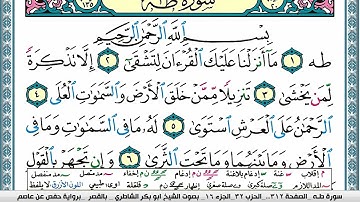 سورة طه
بِسْمِ ٱللَّهِ ٱلرَّحْمَٰنِ ٱلرَّحِيمِ
طه ١ مَآ أَنزَلْنَا عَلَيْكَ ٱلْقُرْءَانَ لِتَشْقَىٰٓ ٢ إِلَّا تَذْكِرَةً
لِّمَن يَخْشَىٰ ٣ تَنزِيلًا مِّمَّنْ خَلَقَ ٱلْأَرْضَ وَٱلسَّمَٰوَٰتِ ٱلْعُلَى ٤
ٱلرَّحْمَٰنُ عَلَى ٱلْعَرْشِ ٱسْتَوَىٰ ٥ لَهُۥ مَا فِى ٱلسَّمَٰوَٰتِ وَمَا فِى
ٱلْأَرْضِ وَمَا بَيْنَهُمَا وَمَا تَحْتَ ٱلثَّرَىٰ ٦ وَإِن تَجْهَرْ بِٱلْقَوْلِ
سورة طه - الصفحة ٣١٢ - الحزب ٣٢ - الجزء ١٦ بصوت الشيخ ابو بكر الشاطري - بالقصر - برواية حفص عن عاصم